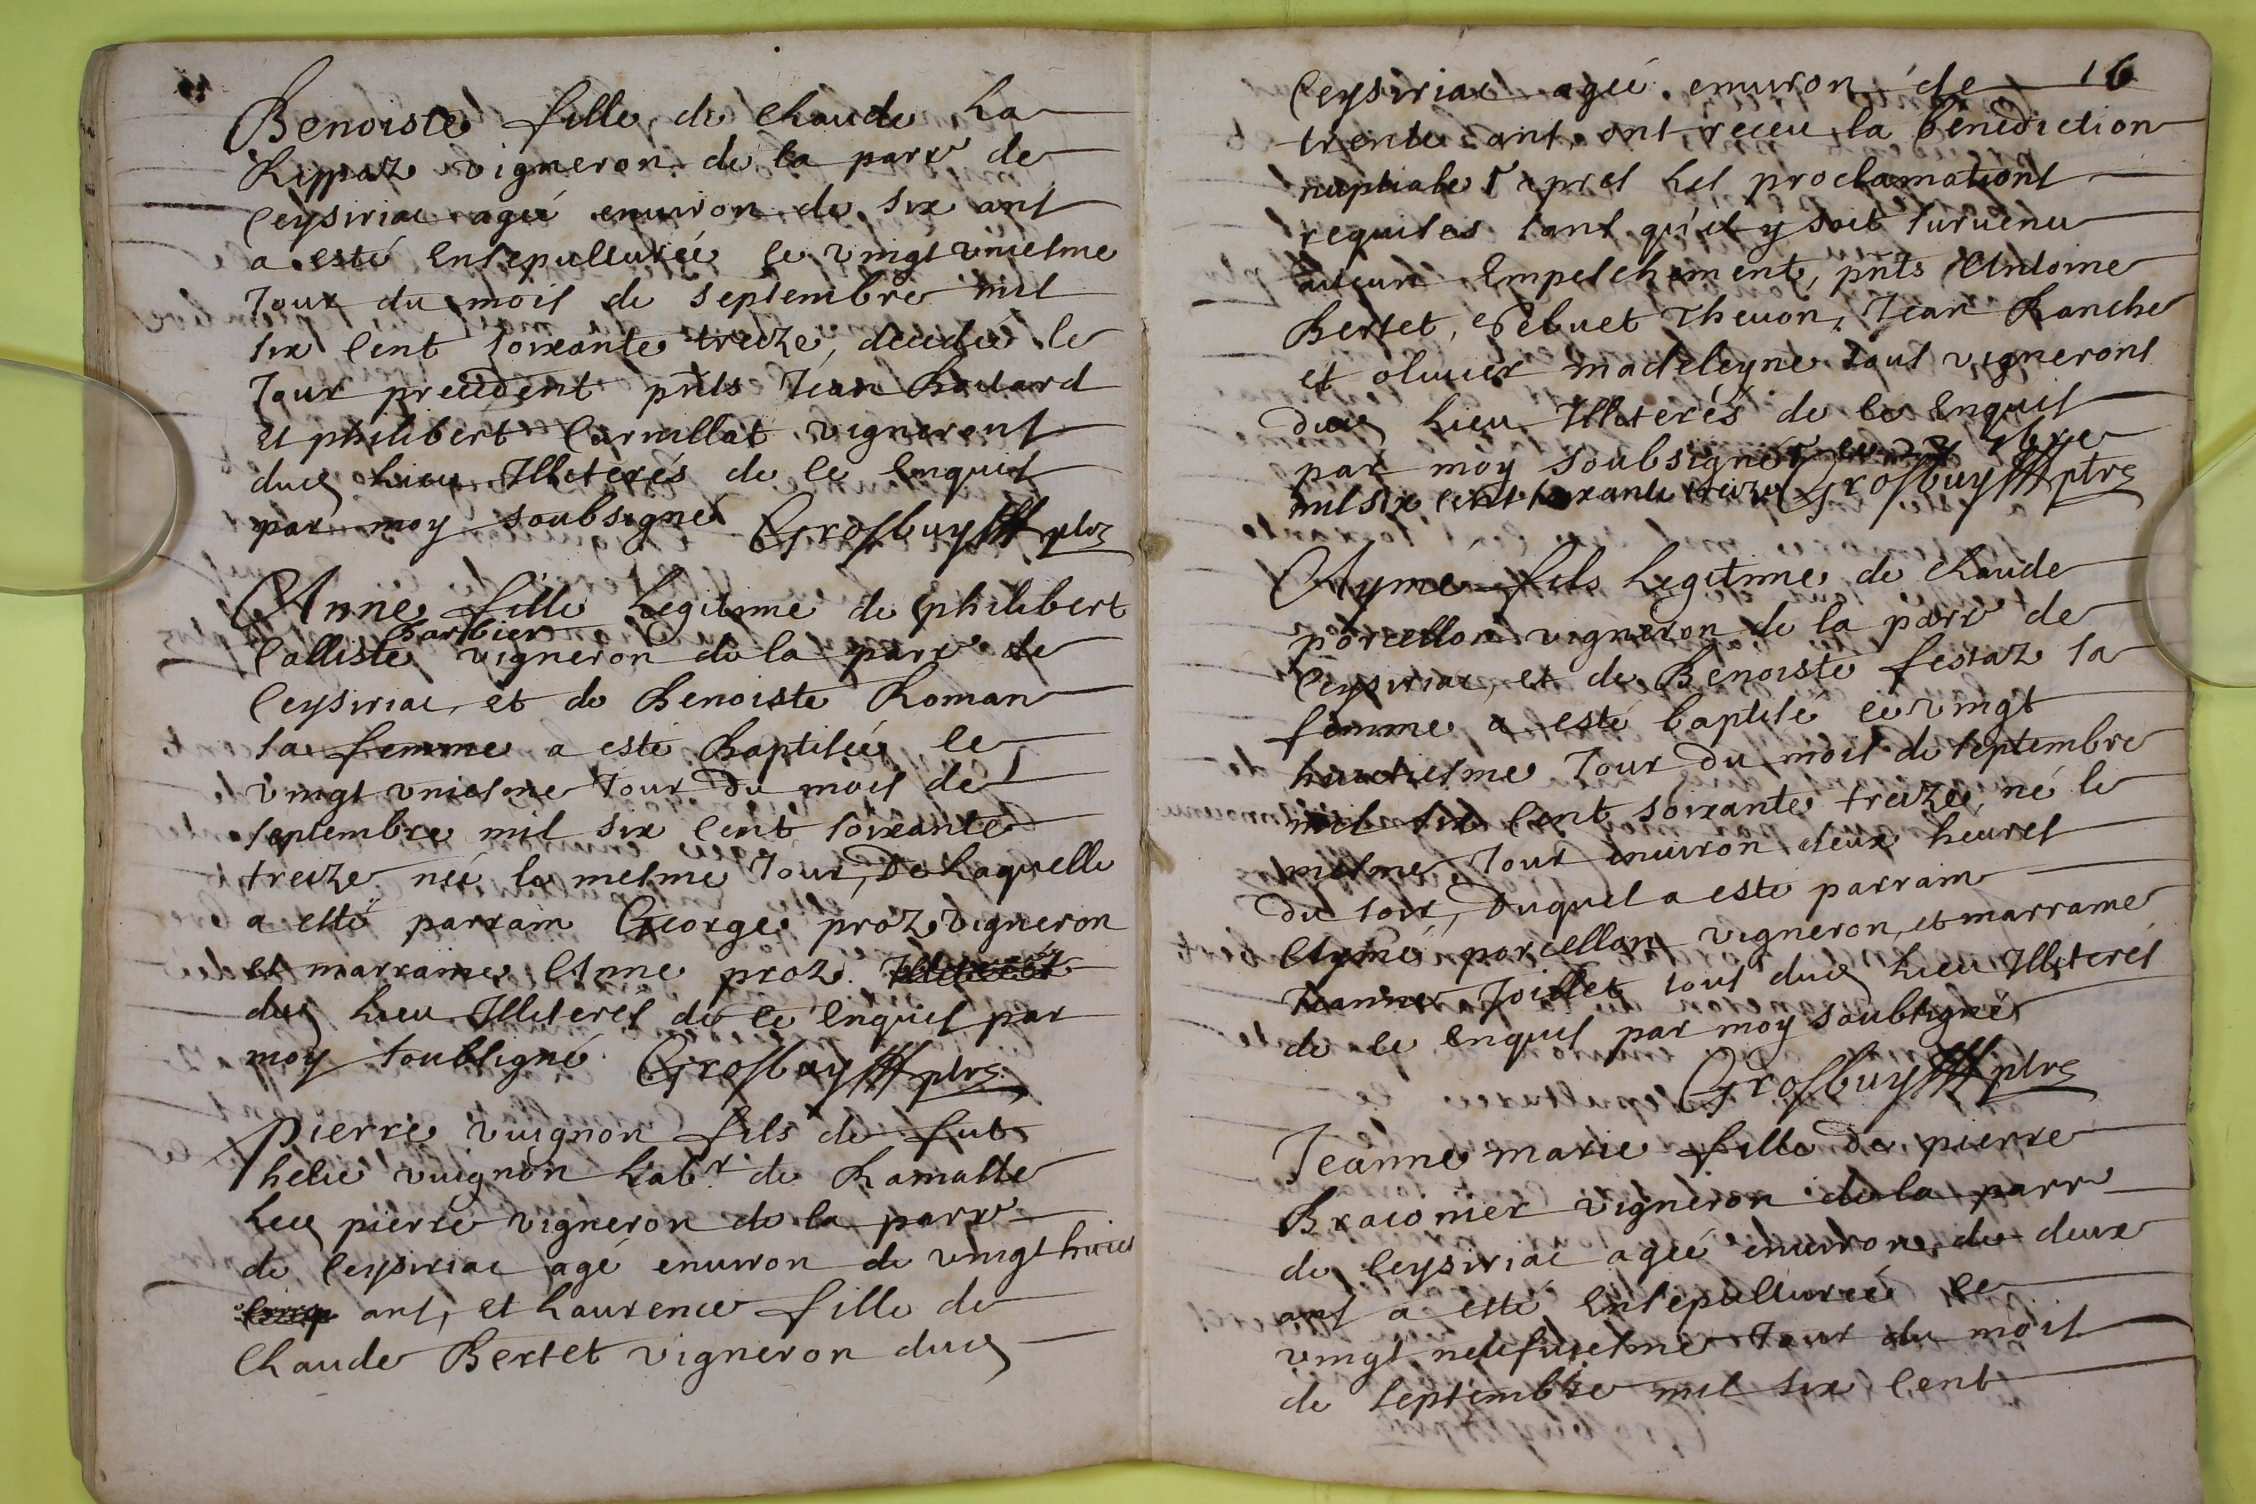 Benoiste fille de Claude La
Rippaz vigneron de la parr de
Ceysiriac agée enuiron de six ans
a esté Ensepulturée le vingt uniesme
Jour du mois de septembre mil
six Cent soixante treize, decedée le
Jour precedent pnts Jean
et philibert Curnillat vignerons
dud Lieu Illeterés de ce Enquis
par moy soubsigné Grosbuy ptre
Anne fille Legitime de philibert
barbier
Calliste vigneron de la parr de
Ceysiriac, et de Benoiste Roman
sa femme a esté Baptisée le
vingt uniesme Jour du mois de
septembre mil six Cent soixante
treize née le mesme Jour, De Laquelle
a esté parrain George proz vigneron
et marraine Anne proz
dud Lieu Illiterés de ce Enquis par
moy soubsigné Grosbuy ptre
pierre vuignon fils de fut
helie vuignon Labr de Ramasse
Led pierre vigneron de la parr
de Ceysiriac agé enuiron de vingt huict
ans, et Laurence fille de
Claude Bertet vigneron dud
16
Ceysiriac agée enuiron de
trente ans, ont receu la benediction
nuptiale apres Les proclamations
requises sans qu'il y soit suruenu
aucun Empeschement, pnts Antoine
Bertet, Thevon, Jean
et oliuier madeleyne tous vignerons
dud Lieu Illeterés de ce Enquis
par moy soubsigné 7bre
mil six cent soixante treize Grosbuy ptre
Aymé fils Legitime de Claude
porcellon vigneron de la parr de
Ceysiriac, et de Benoiste festaz sa
femme a esté baptisé le vingt
huictiesme Jour du mois de septembre
mil six Cent soixante treize, né le
mesme Jour enuiron deux heures
du soir, Duquel a esté parrain
Aymé porcellon vigneron, et marraine
Jeanne Joillet tous dud Lieu Illiterés
de ce Enquis par moy soubsigné
Grosbuy ptre
Jeanne marie fille de pierre
Braconier vigneron de la parr
de Ceysiriac agée enuiron de deux
ans a esté Ensepulturée le
vingt neufuiesme Jour du mois
de septembre mil six Cent